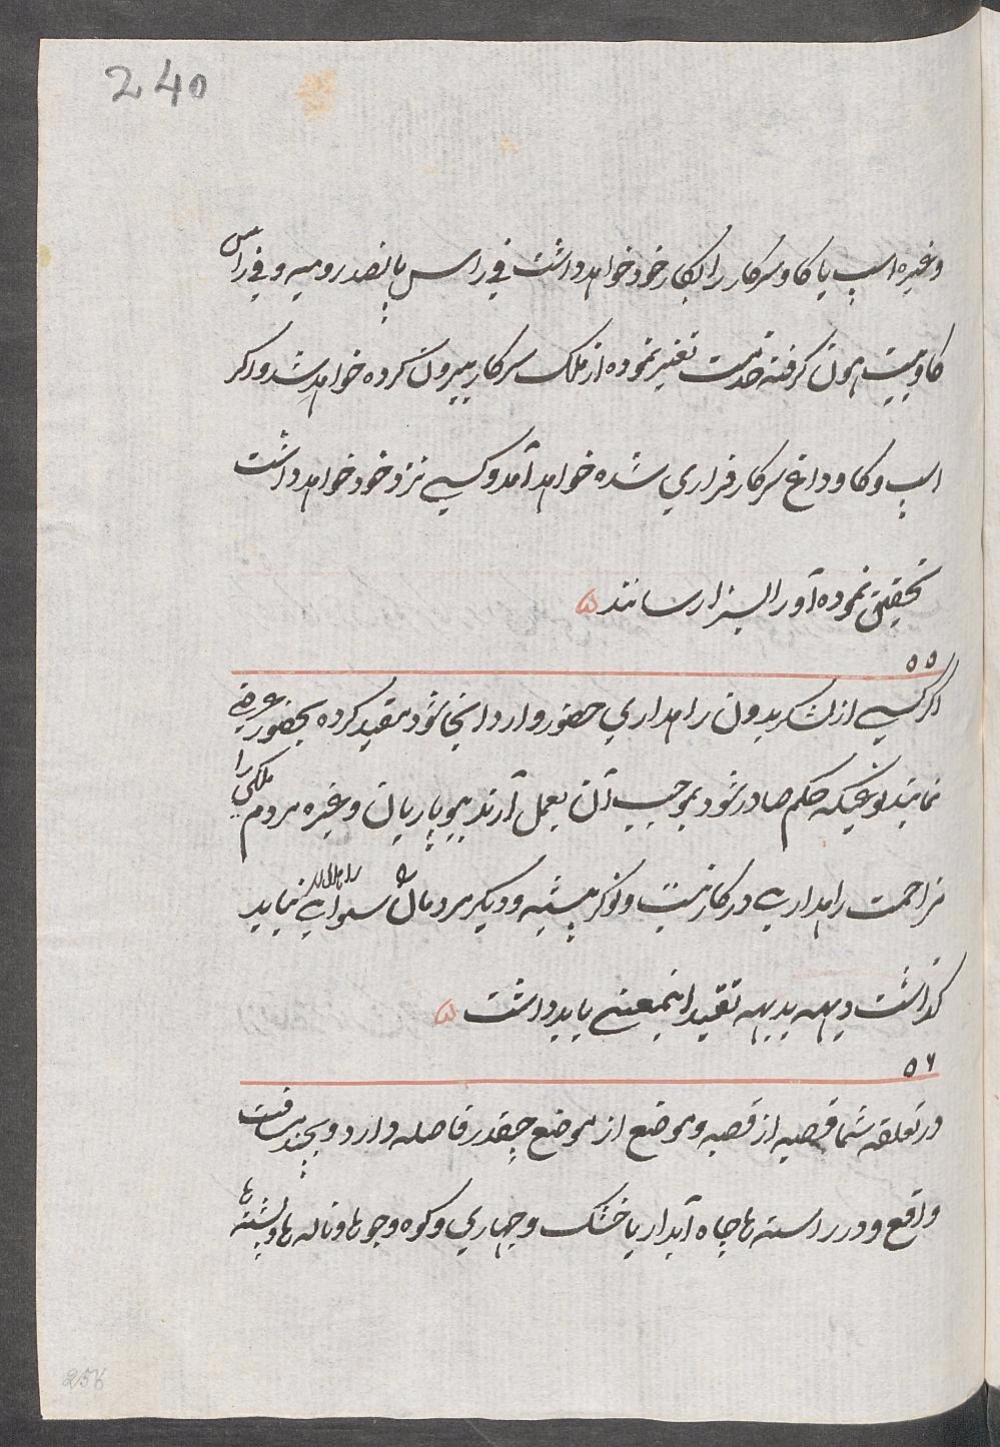 240
وغیره اسپ یا کاو سرکار را بکار خود خواهد داشت في راس پانصد روپیه و في راس
کاو بیست هون کرفته خدمت تغیر نموده از ملک سرکار بیرون کرده خواهد شد و اکر
اسپ و کاو داغ سرکار فراري شده خواهد آمد و کسي نزد خود خواهد داشت
تحقیق نموده آورا بسزا رسانند
۵۵
اکر کسي از لشکر بدون راهداري حضور وارد انجا شود مقید کرده بحضور عرضي
نمایند نوعیکه حکم صادر شود بموجب آن بعمل آرند بیوپاریان وغیره مردم ملکي را
مزاحمت راهداري درکار نیست و نوکر پیشه و دیکر مردمان سواي راهداري نباید
کذاشت دیهه بدیهه تقید اینمعني باید داشت
۵۶
در تعلقه شما قصبه از قصبه و موضع از موضع چقدر فاصله دارد و بچند مسافت
واقع و در راسته ها چاه آبدار یا خشک و جهاري و کوه و جوها و ناله ها و پشته ها
256